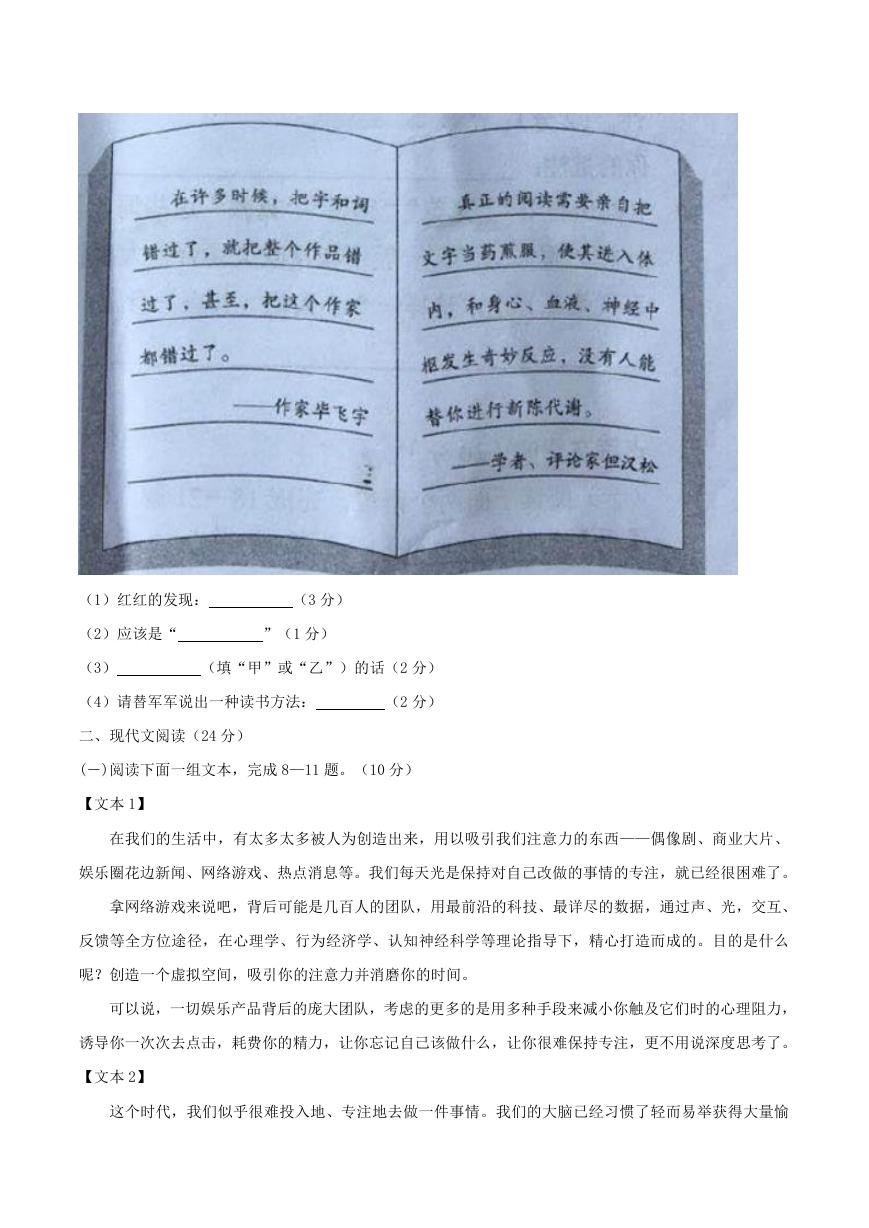 在许多时候，把字和词
错过了，就把整个作品错
过了，甚至，把这个作家
都错过了。
——作家毕飞宇
真正的阅读需要亲自把
文字当药煎服，使其进入体
内，和身心、血液、神经中
枢发生奇妙反应，没有人能
替你进行新陈代谢。
——学者、评论家但汉松
（1）红红的发现：__________（3 分）
（2）应该是“__________”（1 分）
（3）__________（填“甲”或“乙”）的话（2 分）
（4）请替军军说出一种读书方法：________（2 分）
二、现代文阅读（24 分）
(一)阅读下面一组文本，完成 8—11 题。（10 分）
【文本 1】
在我们的生活中，有太多太多被人为创造出来，用以吸引我们注意力的东西——偶像剧、商业大片、
娱乐圈花边新闻、网络游戏、热点消息等。我们每天光是保持对自己改做的事情的专注，就已经很困难了。
拿网络游戏来说吧，背后可能是几百人的团队，用最前沿的科技、最详尽的数据，通过声、光，交互、
反馈等全方位途径，在心理学、行为经济学、认知神经科学等理论指导下，精心打造而成的。目的是什么
呢？创造一个虚拟空间，吸引你的注意力并消磨你的时间。
可以说，一切娱乐产品背后的庞大团队，考虑的更多的是用多种手段来减小你触及它们时的心理阻力，
诱导你一次次去点击，耗费你的精力，让你忘记自己该做什么，让你很难保持专注，更不用说深度思考了。
【文本 2】
这个时代，我们似乎很难投入地、专注地去做一件事情。我们的大脑已经习惯了轻而易举获得大量愉